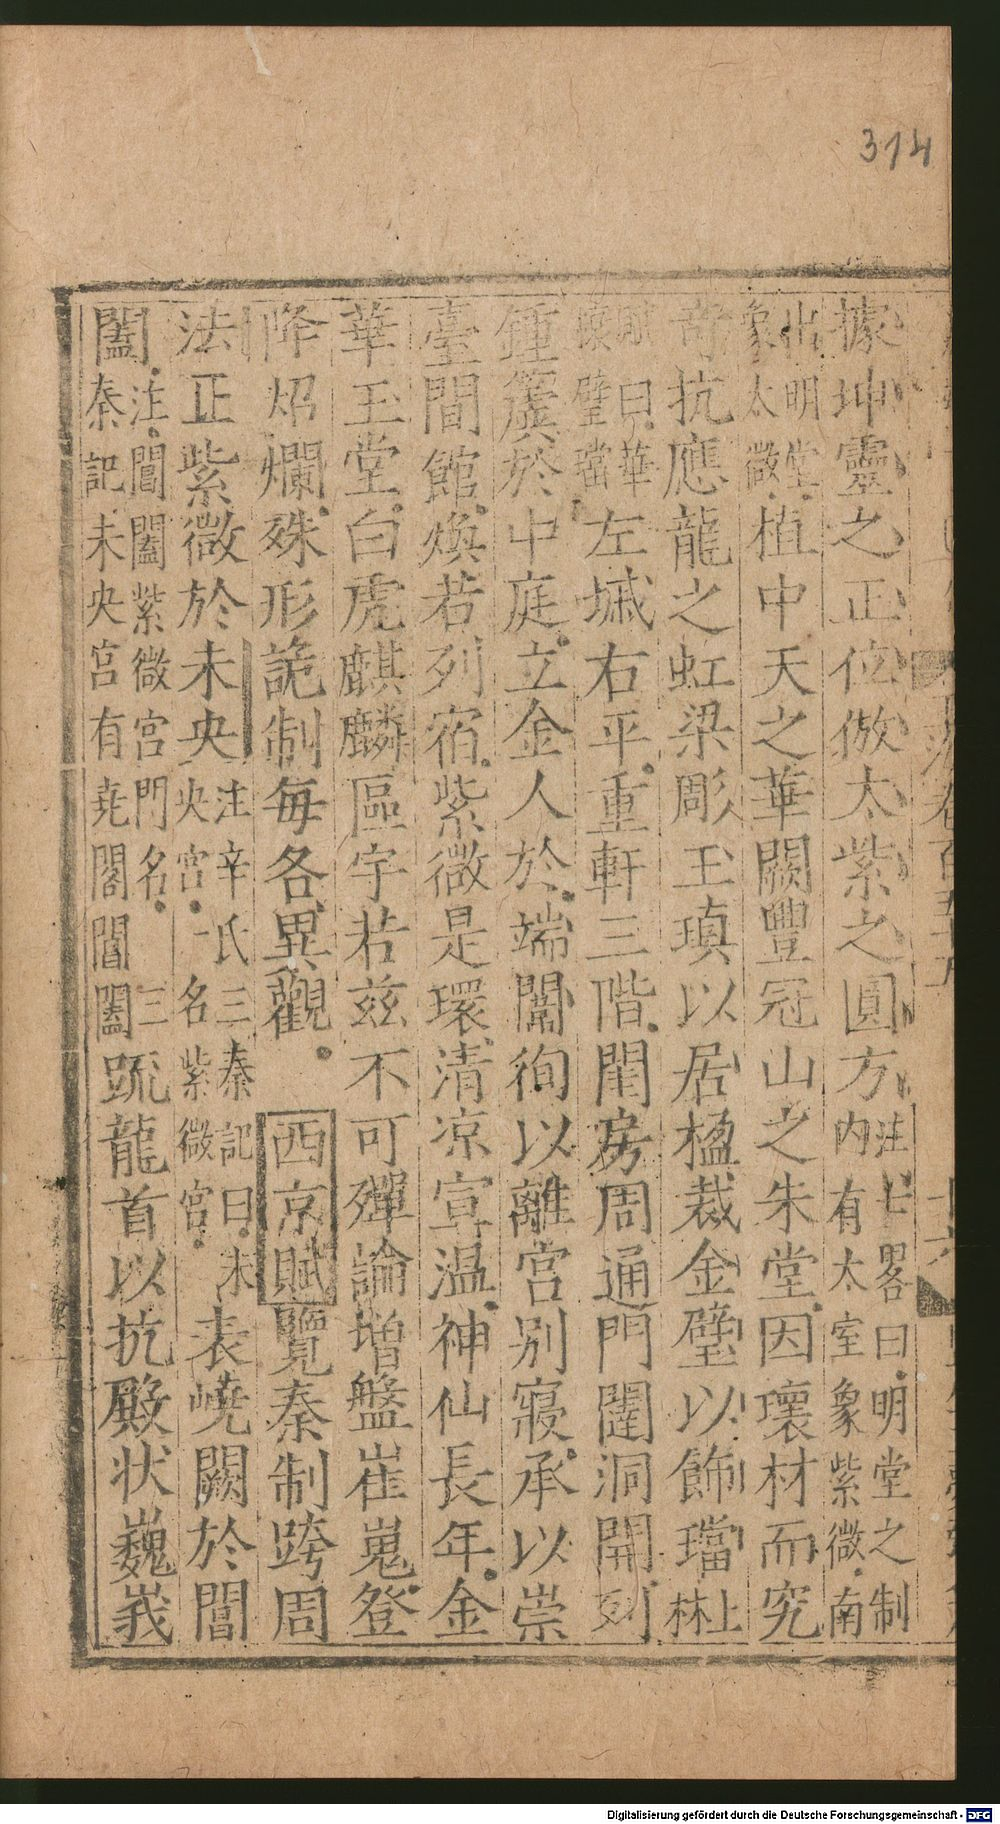 314
據坤靈之正位倣太紫之圓方注七畧曰明堂之制
內有太室象紫微南
出明堂
象太微植中天之華闕豐冠山之朱堂因瓌材而究
奇抗應龍之虹梁彫玉瑱以居楹裁金璧以飾璫上林
賦曰華
榱璧璫左墄右平重軒三階閨房周通門闥洞開列
鍾簴於中庭立金人於端闈徇以離宮别寢承以崇
臺間館煥若列宿紫微是環清凉宣温神仙長年金
華玉堂白虎麒麟區宇若兹不可殫論增盤崔嵬登
降炤爛殊形詭制每各異觀 西京賦覽秦制跨周
法正紫微於未央注辛氏三秦記曰未
央宮一名紫微宮表嶢闕於閶
闔注閶闔紫微宮門名三
秦記未央宮有堯閣閶闔䟽龍首以抗殿状巍峩
Digitalisierung gefördert durch die Deutsche Forschungsgemeinschaft - DFG